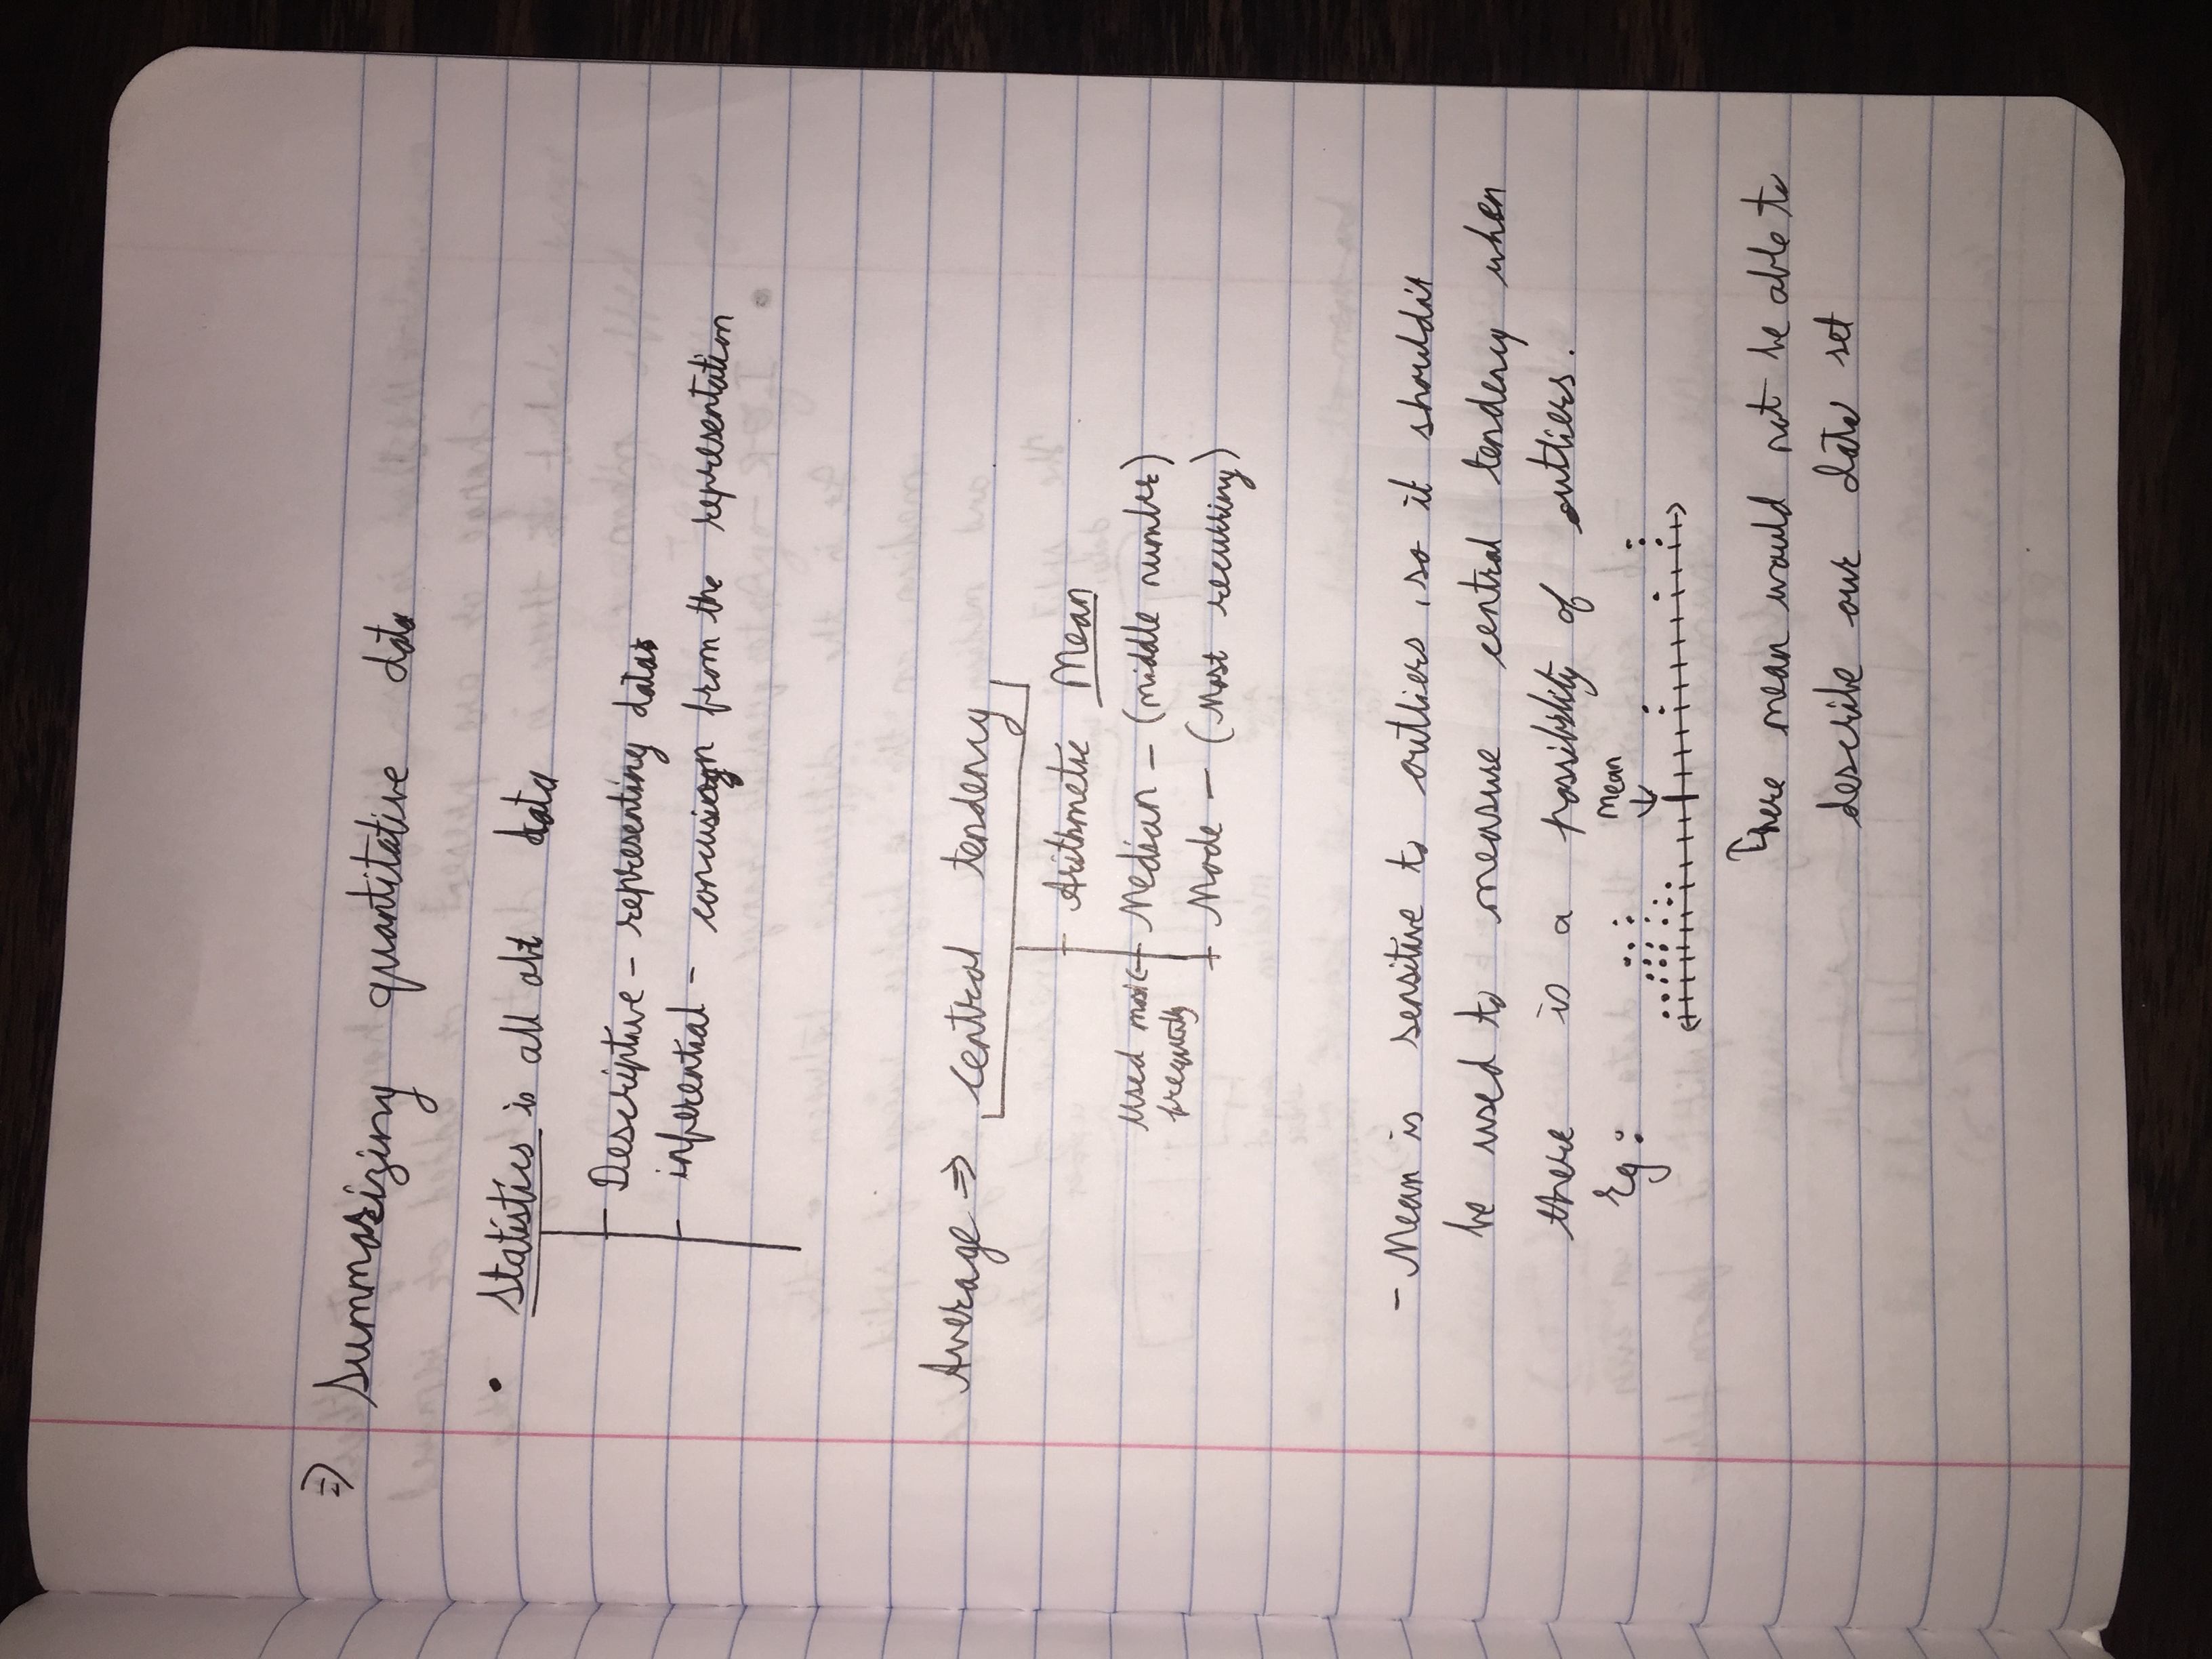 ⇒ Summarizing quantitative data
• Statistics is all abt data
Descriptive - representing data
inferential - from the representation
Average ⇒ central tendency
Arithmetic Mean
Used most frequently
Median - (middle number)
Mode - (Most recurring)
- Mean is sensitive to outliers, so it shouldn't
be used to measure central tendency when
there is a possibility of outliers.
Eg:
Mean
here mean would not be able to
describe our data set